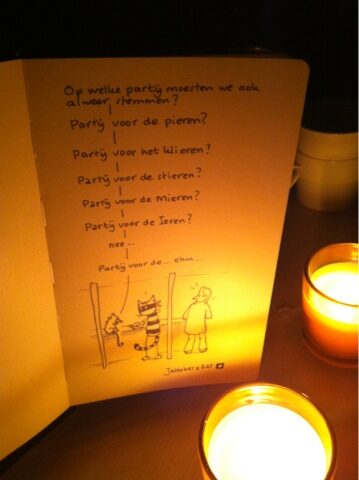 Op welke partij moesten we ook
alweer stemmen?
Partij voor de pieren?
Partij voor het klieren?
Partij voor de stieren?
Partij voor de Mieren?
Partij voor de Ieren?
nee...
Partij voor de... ehm...